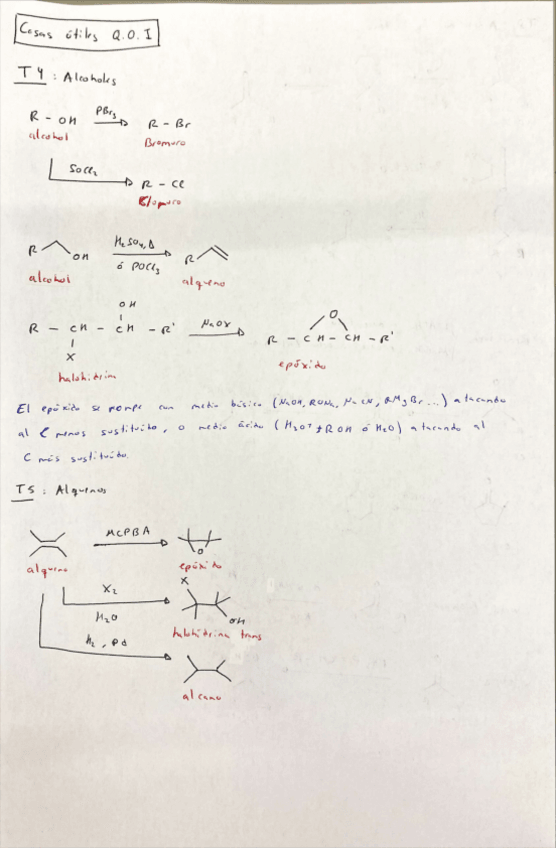 Cosas útiles Q.O.I
T4: Alcoholes
R - OH PBr3 R - Br
alcohol Bromuro
SOCl2 R - Cl
Cloruro
R OH H2SO4, Δ R
ó POCl3
alcohol alqueno
OH
R - CH - CH - R' NaOH O
R - CH - CH - R'
X
halohidrina epóxido
El epóxido se rompe con medio básico (NaOH, RONa, NaCN, RMgBr...) atacando
al C menos sustituído, o medio ácido (H3O+ + ROH ó H2O) atacando al
C más sustituído.
T5: Alquenos
MCPBA
O
alqueno epóxido
X2 X
H2O OH
halohidrina trans
H2, Pd
alcano